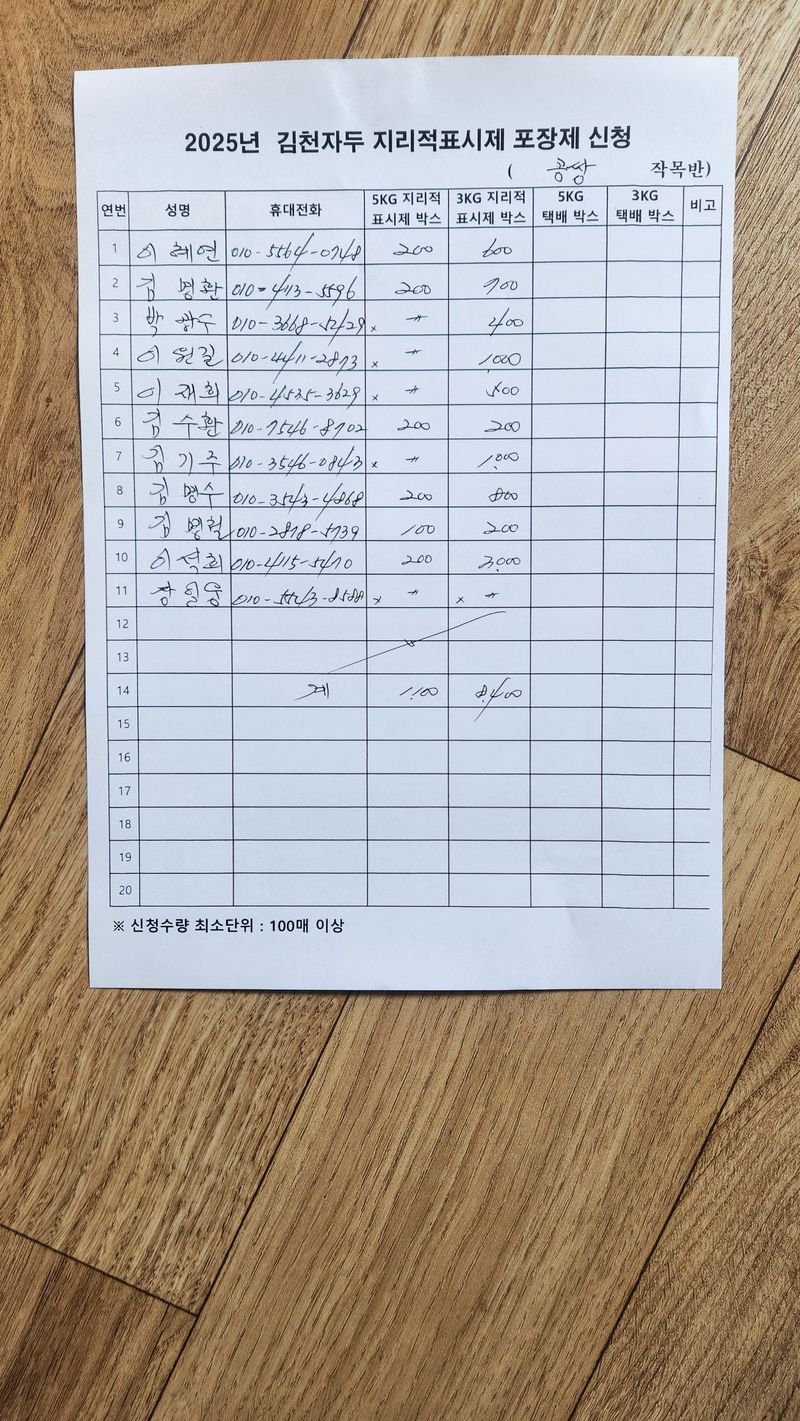 2025년 김천자두 지리적표시제 포장제 신청
( 공쌍 작목반)
연번 성명 휴대전화 5KG 지리적 표시제 박스 3KG 지리적 표시제 박스 5KG 택배 박스 3KG 택배 박스 비고
1 이혜연 010-5564-0748 200 600
2 김명환 010-4113-5596 200 700
3 박광수 010-3668-5229 × 〃 400
4 이원길 010-4411-2873 × 〃 1,000
5 이재희 010-4535-3629 × 〃 500
6 김수환 010-7546-8702 200 200
7 김기주 010-3546-0843 × 〃 1,000
8 김명수 010-3543-4868 200 800
9 김병철 010-2878-5739 100 200
10 이석희 010-4115-5470 200 3,000
11 장일웅 010-5543-8588 × 〃 × 〃
12
13
14 계 1,100 8,400
15
16
17
18
19
20
※ 신청수량 최소단위 : 100매 이상